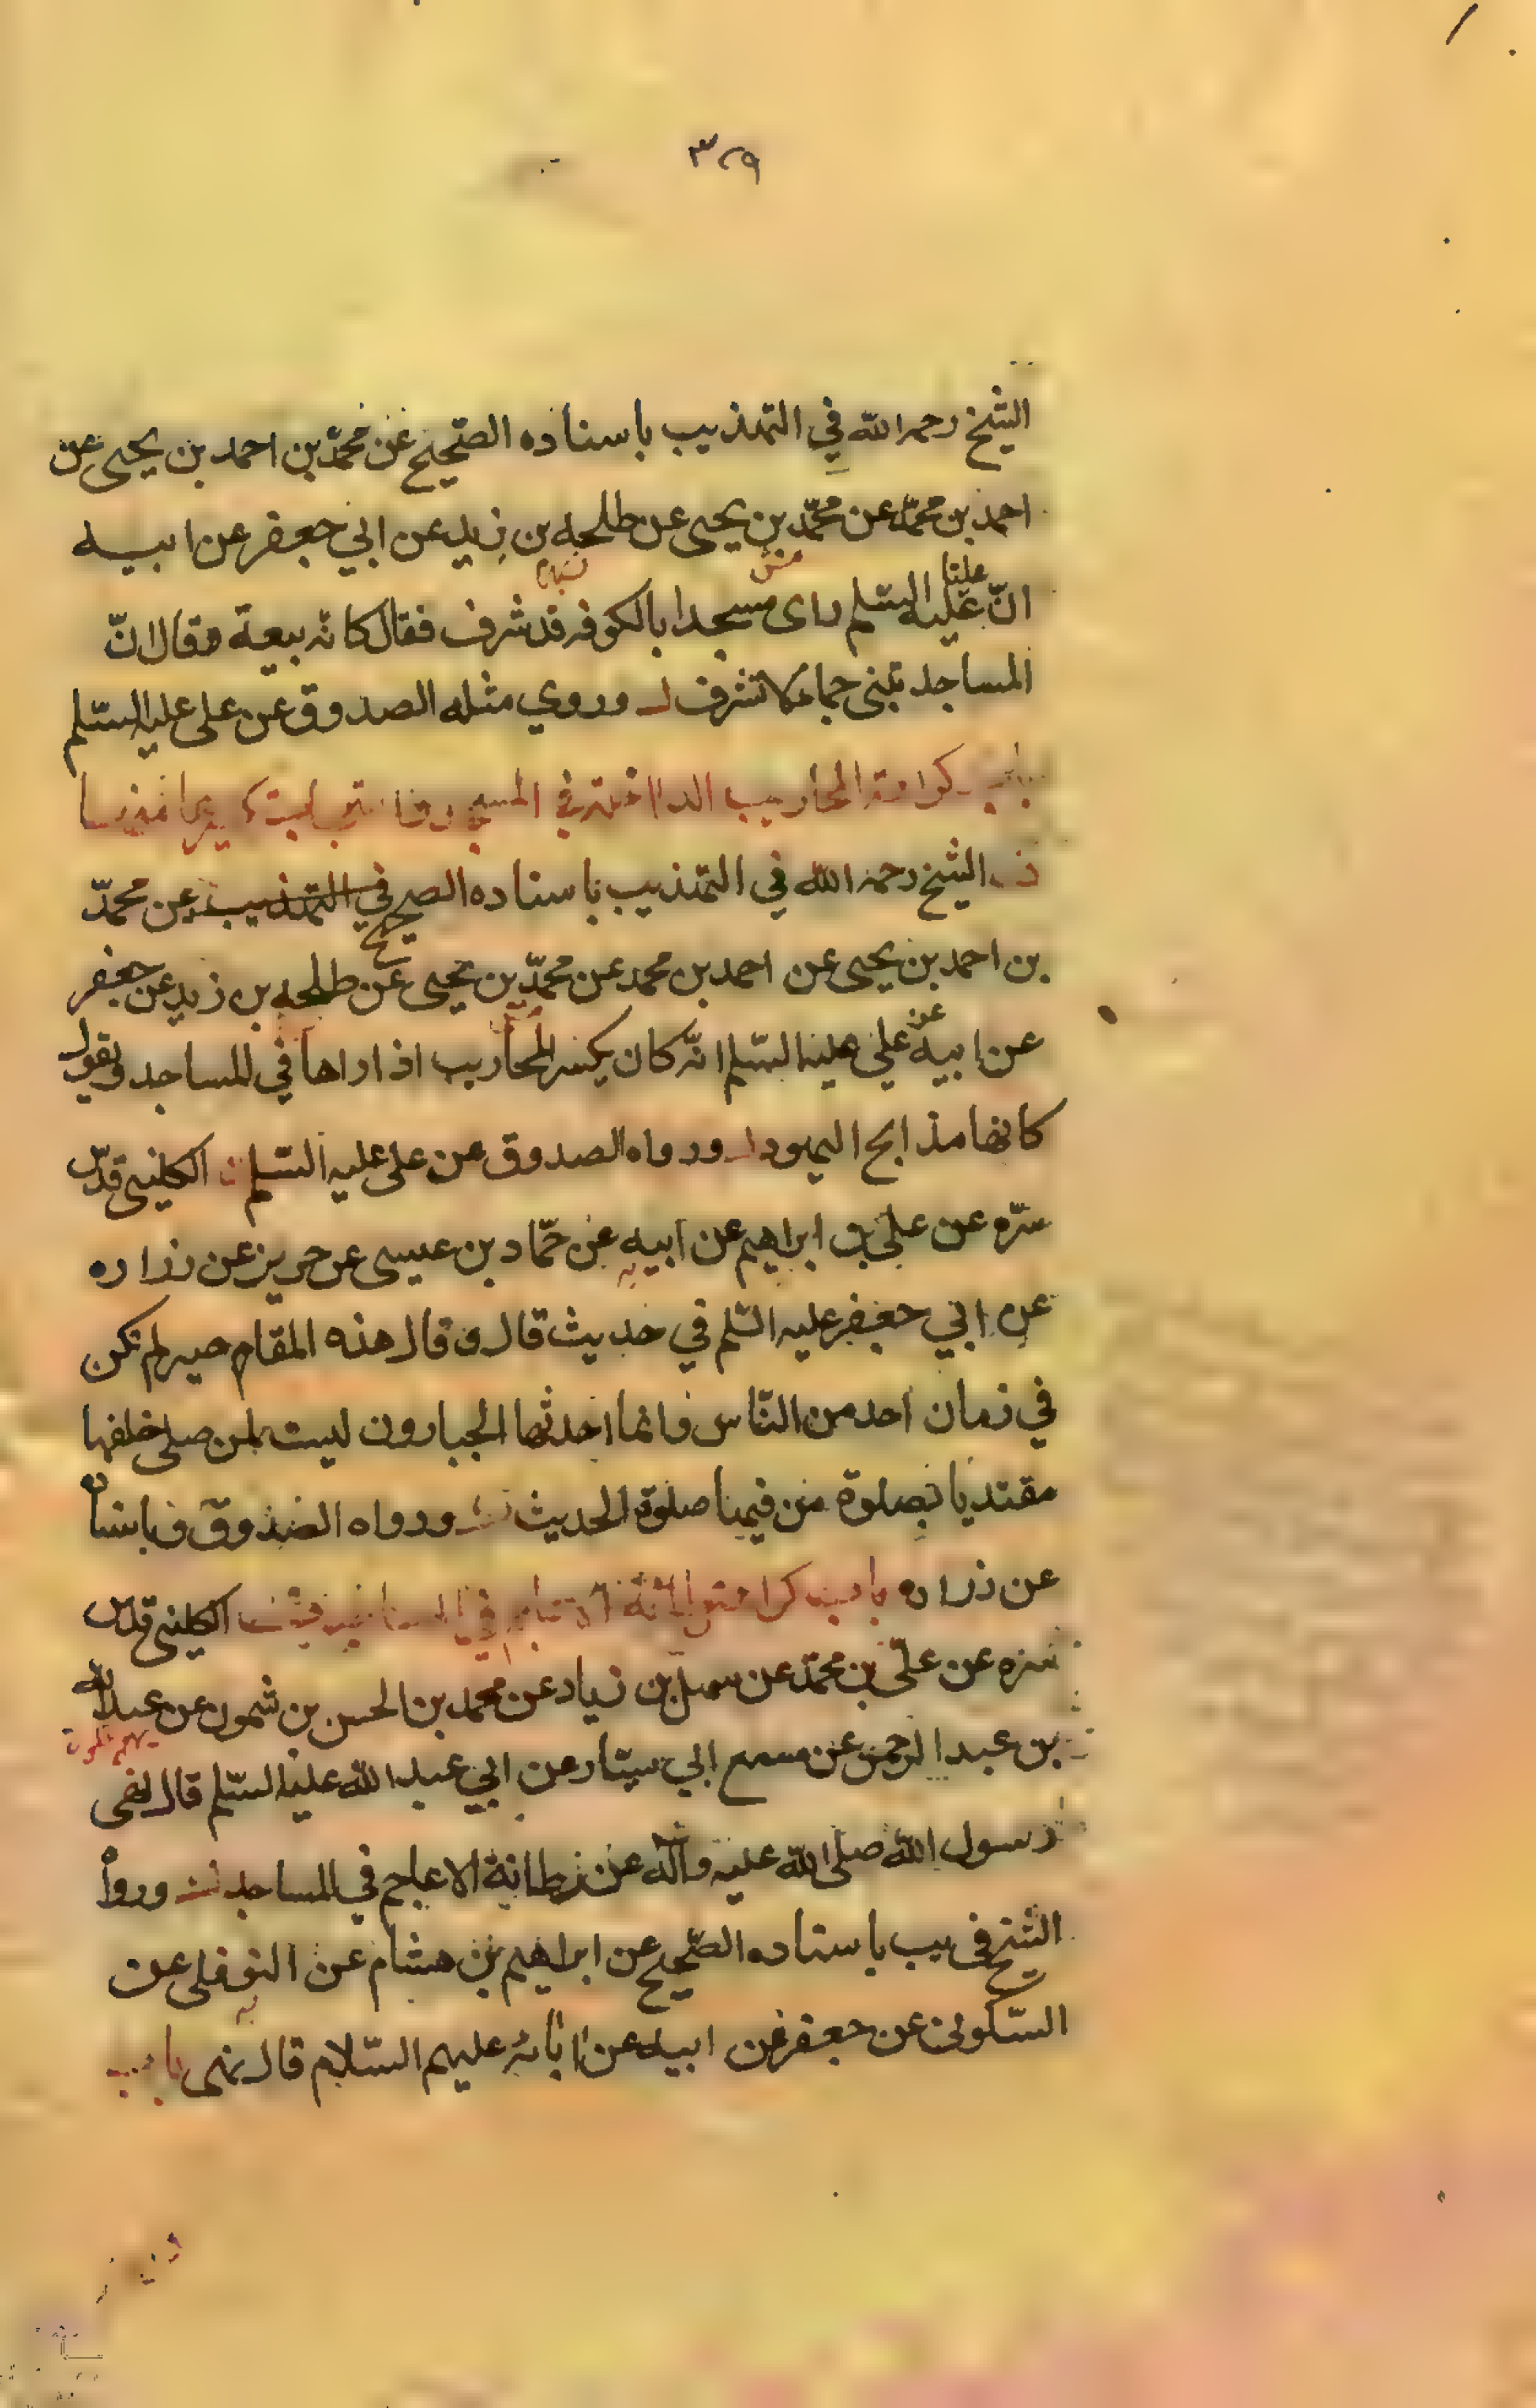 ٣٢٩
الشيخ رحمه الله في التهذيب باسناده الصحيح عن محمّد بن احمد بن يحيى عن
احمد بن محمّد عن محمّد بن يحيى عن طلحه بن زيد عن ابي جعفر عن ابيه
انّ عليا عليه السّلم راى مسجدا بالكوفه قد شرف فقال كانه بيعة وقال انّ
المساجد تبنى جما لا تشرف وروي مثله الصدوق عن على عليه السّلم
باب كراهة المحاريب الداخلة في
الشيخ رحمه الله في التهذيب باسناده الصحيح في التهذيب عن محمّد
بن احمد بن يحيى عن احمد بن محمد عن محمّد بن يحيى عن طلحه بن زيد عن جعفر
عن ابيه عن علي عليه السّلم انّه كان يكسر المحاريب اذا راها في المساجد ويقول
كانها مذابح اليهود ورواه الصدوق عن على عليه السّلم الكليني قدّس
سرّه عن علي بن ابراهيم عن ابيه عن حمّاد بن عيسى عن حريز عن زراره
عن ابي جعفر عليه السّلم في حديث قال وقال هذه المقام لم تكن
في زمان احد من النّاس وانما احدثها الجبارون ليست لمن صلى خلفها
مقتديا بصلوة من فيها صلوة الحديث ورواه الصدوق باسنا
عن زراره باب كراهة في الكليني قدس
سره عن علي بن محمّد عن سهل بن زياد عن محمد بن الحسن بن شمون عن عبد الله
بن عبد الرحمن عن مسمع ابي سيّار عن ابي عبد الله عليه السّلم قال نهى
رسول الله صلى الله عليه وآله عن رطانة الاعاجم في المساجد وروا
الشيخ في يب باسناده الصّحيح عن ابراهيم بن هشام عن النوفلى عن
السّكوني عن جعفر عن ابيه عن ابائه عليهم السّلام قال نهى باب